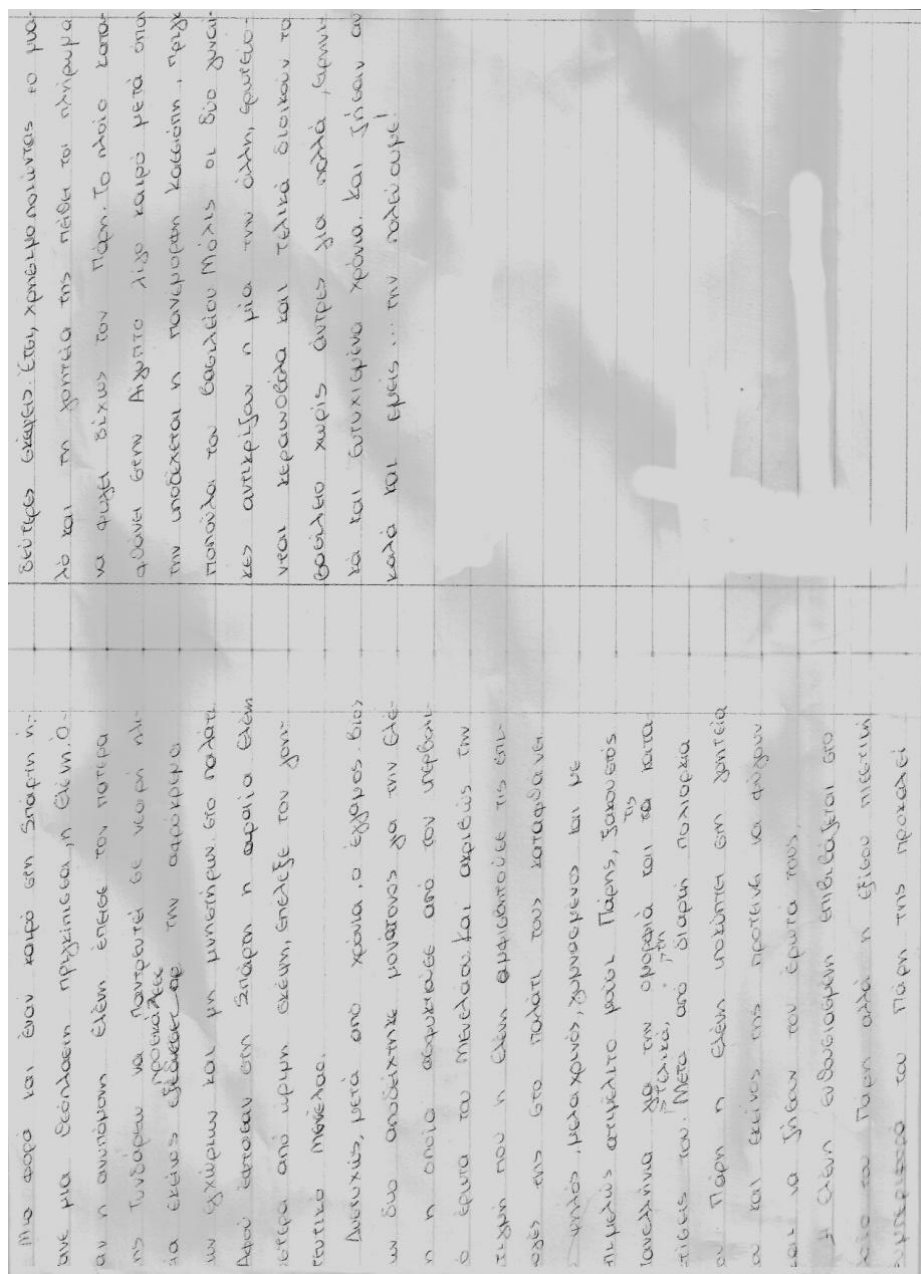 Μια φορά και έναν καιρό στη Σπάρτη ή-
τανε μια ξεόπλαση πριγκίπισσα, η Ελένη. Ό-
αν η ανυπόμονη Ελένη έπεισε τον πατέρα
της Τυνδάρεων να παντρευτεί σε νεαρή ηλι-
κία εκείνος προσκάλεσε την αφρόκρεμα
των εγχώριων και μη μνηστήρων στο παλάτι
Αφού έφτασαν στη Σπάρτη η ωραία Ελένη
ύστερα από ώριμη σκέψη, επέλεξε τον γοη-
τευτικό Μενέλαο.
Δυστυχώς, μετά από χρόνια, ο έγγαμος βίος
των δυο αποδείχτηκε μονότονος για την Ελέ-
νη η οποία ασφυκτιούσε από τον υπερβολι-
κό έρωτα του Μενέλαου. Και ακριβώς την
στιγμή που η Ελένη αμφισβητούσε τις επι-
λογές της στο παλάτι τους καταφθάνει
ο ψηλός, μελαχρινός, γυμνασμένος και με
επιμελώς ατημέλητο μαλλί Πάρης, ξακουστός
πανελλήνια για την ομορφιά και τις κατα-
κτήσεις του. Τελικά, μετά από διαρκή πολιορκία
του Πάρη η Ελένη υποκύπτει στη γοητεία
του και εκείνος της προτείνε να φύγουν
και να ζήσουν τον έρωτα τους.
Η Ελένη ενθουσιασμένη επιβιβάζεται στο
πλοίο του Πάρη αλλά η εξίσου πιεστική
συμπεριφορά του Πάρη της προκαλεί
δεύτερες σκέψεις. Έτσι, χρησιμοποιώντας το μυα-
λό και τη γοητεία της πείθει το πλήρωμα
να φύγει δίχως τον Πάρη. Το πλοίο κατα-
φθάνει στην Αίγυπτο λίγο καιρό μετά όπου
την υποδέχεται η πανέμορφη Κασσιόπη, πριγκι-
ποπούλα του βασιλείου. Μόλις οι δύο γυναί-
κες αντικρίζαν η μία την άλλη, ερωτεύο-
νται κεραυνοβόλα και τελικά διοικούν το
βασίλειο χωρίς άντρες για πολλά, ειρηνι-
κά και ευτυχισμένα χρόνια. Και ζήσαν αυ
καλά και εμείς... την παλεύουμε!